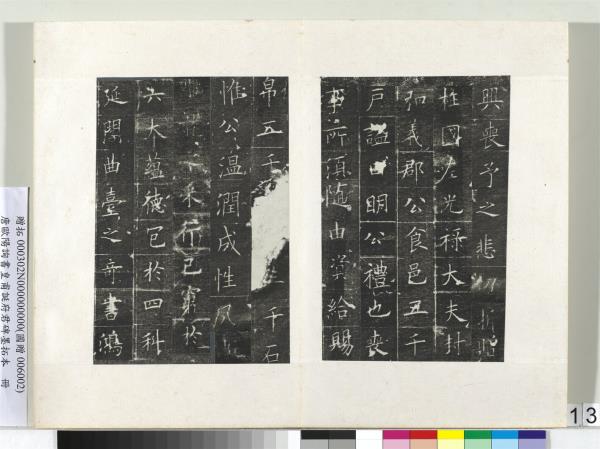 興喪予之悲
柱國左光祿大夫封
弘義郡公食邑五千
戶謚曰明公禮也喪
事所須隨由資給賜
帛五千 千石
惟公溫潤成性夙
采行己窮於
六本蘊德包於四科
延閣曲臺之奇書鴻
贈拓 000302N000000000(國贈 006002)
唐歐陽詢書皇甫誕府君碑墨拓本 冊
13